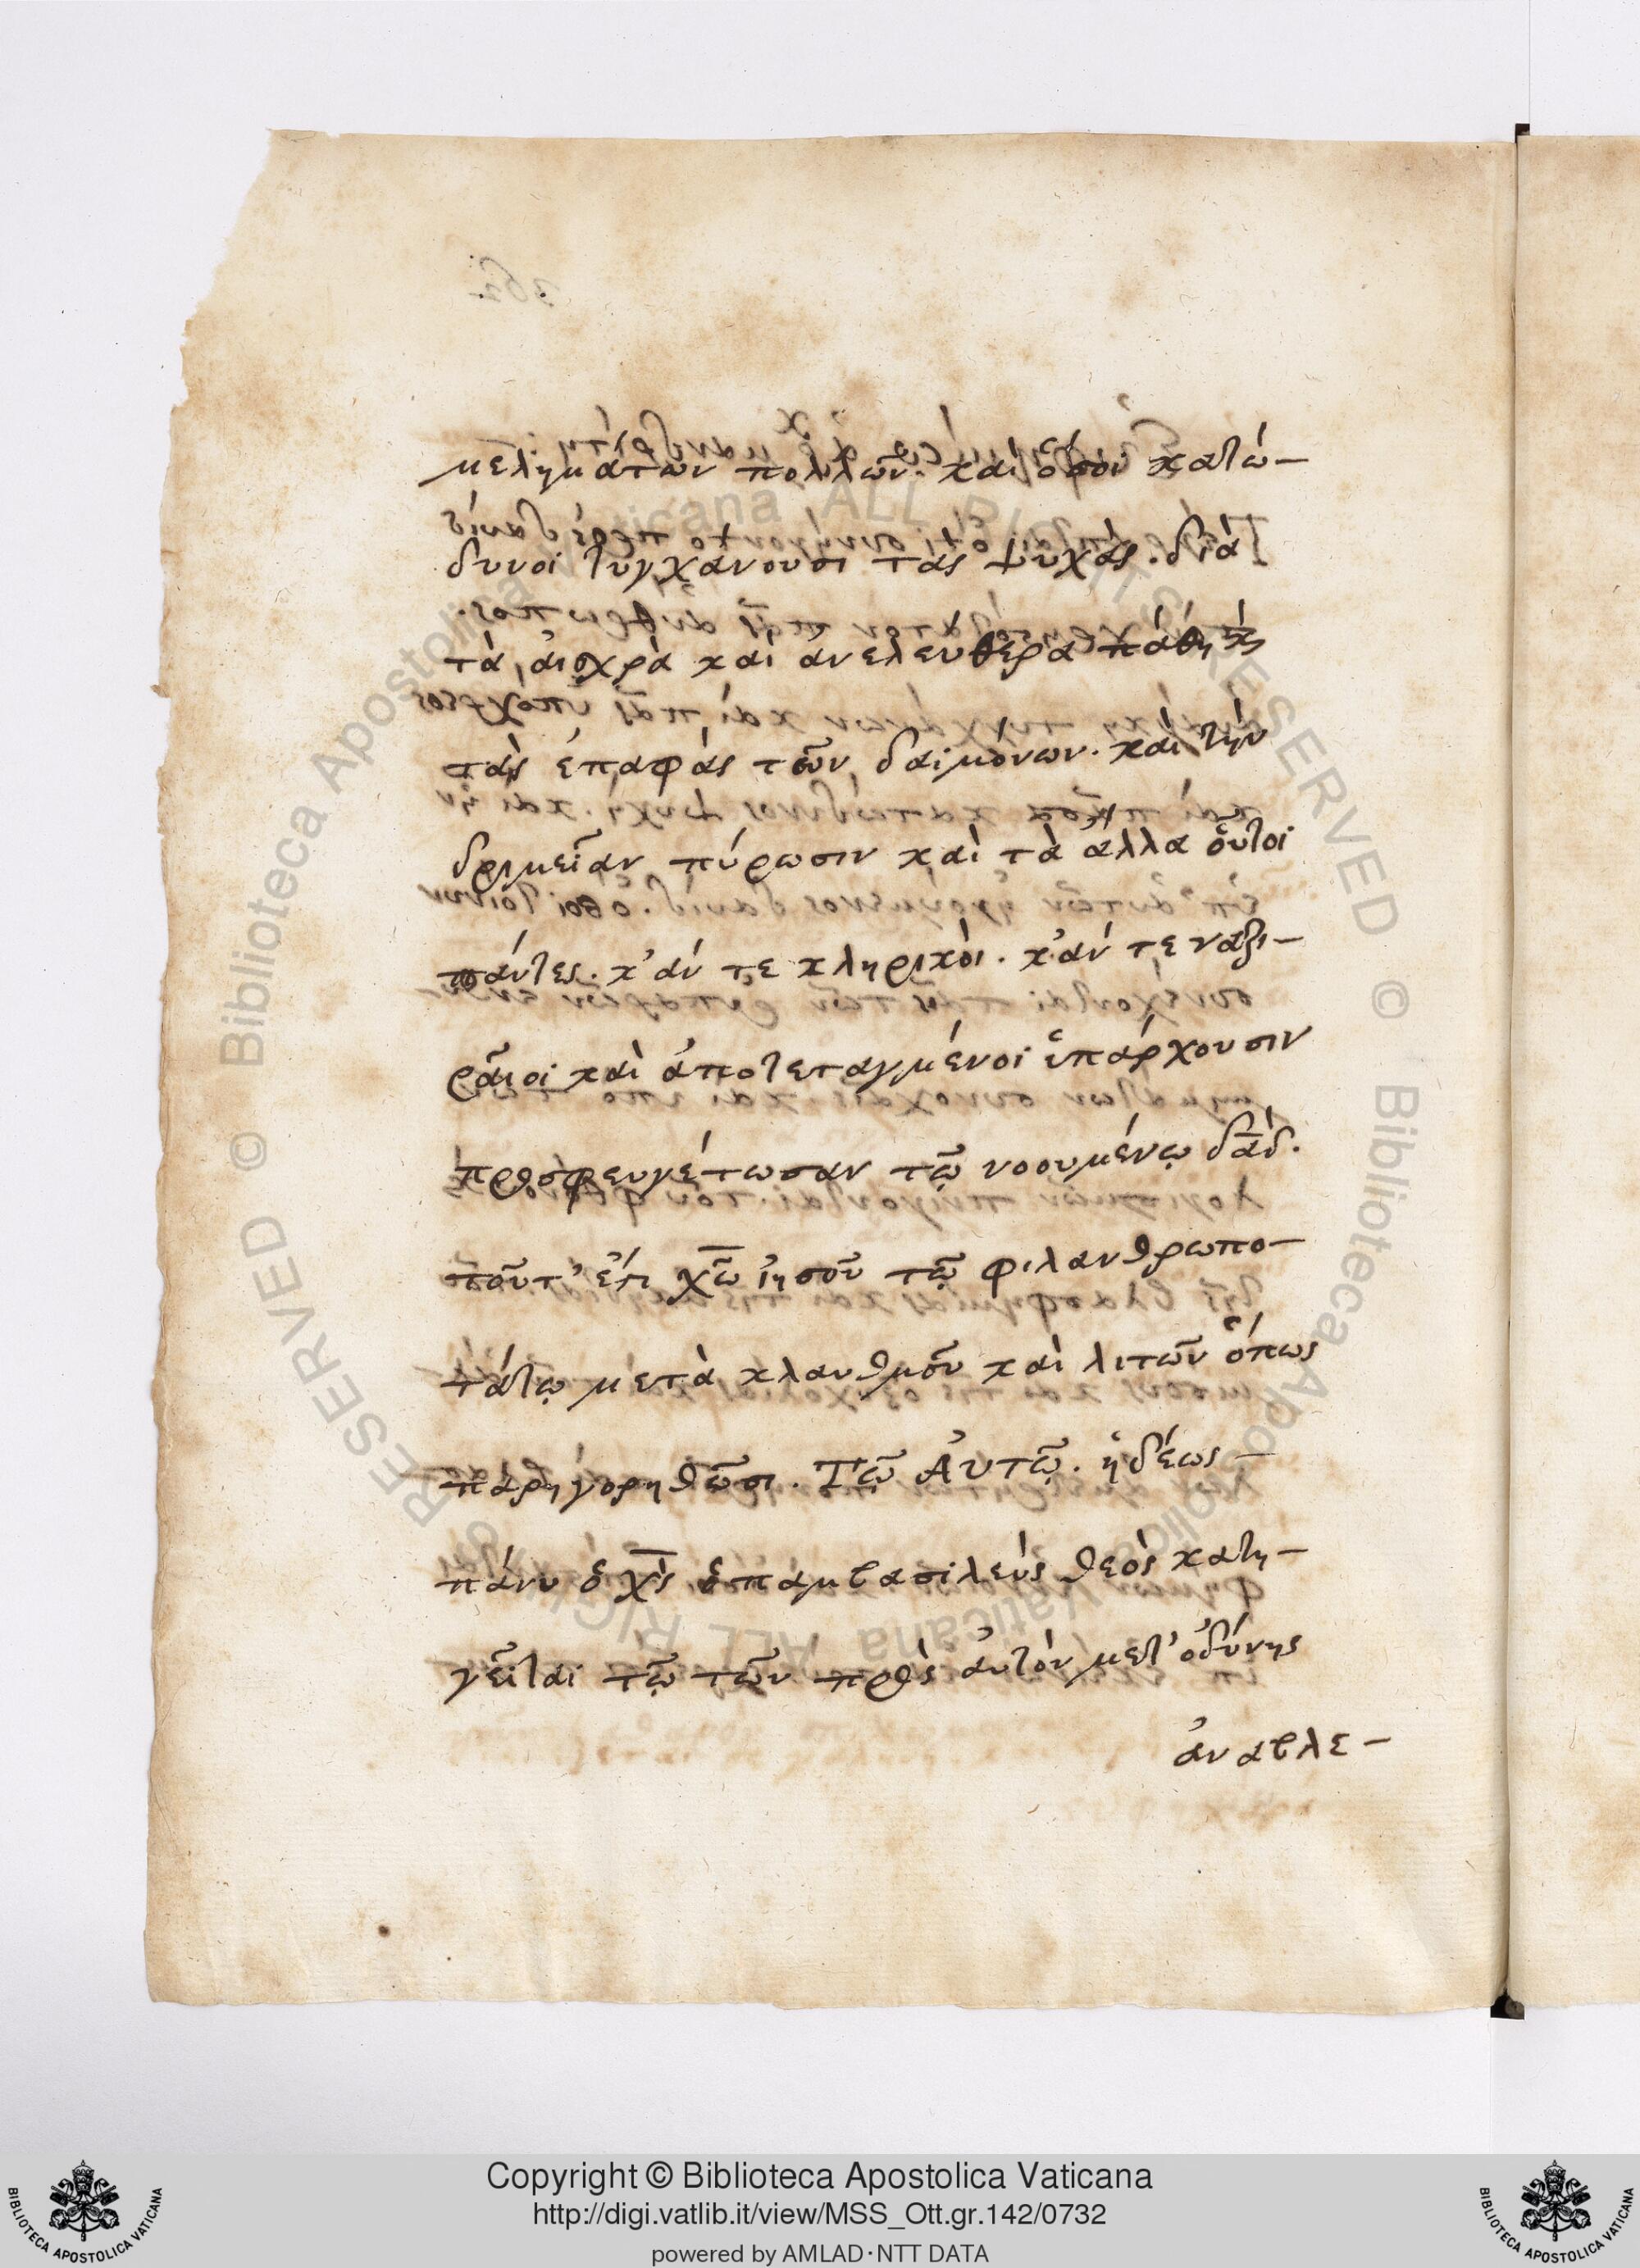 μελημάτων πολλῶν· καὶ ὅσοι κατώ-
δυνοι τυγχάνουσι τὰς ψυχάς· διὰ
τὰ αἰσχρὰ καὶ ἀνελεύθερα πάθη κ̀
τὰς ἐπαφὰς τῶν δαιμόνων· καὶ τὴν
δριμεῖαν πύρωσιν καὶ τὰ ἄλλα οὗτοι
πάντες· κ'ἄν τε κληρικὸι· κ'ἄν τε ναζι-
ραῖοι καὶ ἀποτεταγμένοι ὑπάρχουσιν
προσφευγέτωσαν τῶ νοουμένω δᾱδ·
τοῦτ' ἔστι χ̅ῶ ἰησοῦ τῶ φιλανθρωπο-
τάτω μετὰ κλαυθμοῦ καὶ λιτῶν ὅπως
παρηγορηθῶσι. Τῶ Αὐτῶ. ἡδέως -
πάνυ ὁ χ̅ς ὁ παμβασιλεὺς θεὸς κατη-
γεῖται τῶ τῶν πρὸς αὐτὸν μετ' ὀδύνης
ἀναβλε-
Copyright © Biblioteca Apostolica Vaticana
http://digi.vatlib.it/view/MSS_Ott.gr.142/0732
powered by AMLAD·NTT DATA
BIBLIOTECA APOSTOLICA VATICANA
BIBLIOTECA APOSTOLICA VATICANA